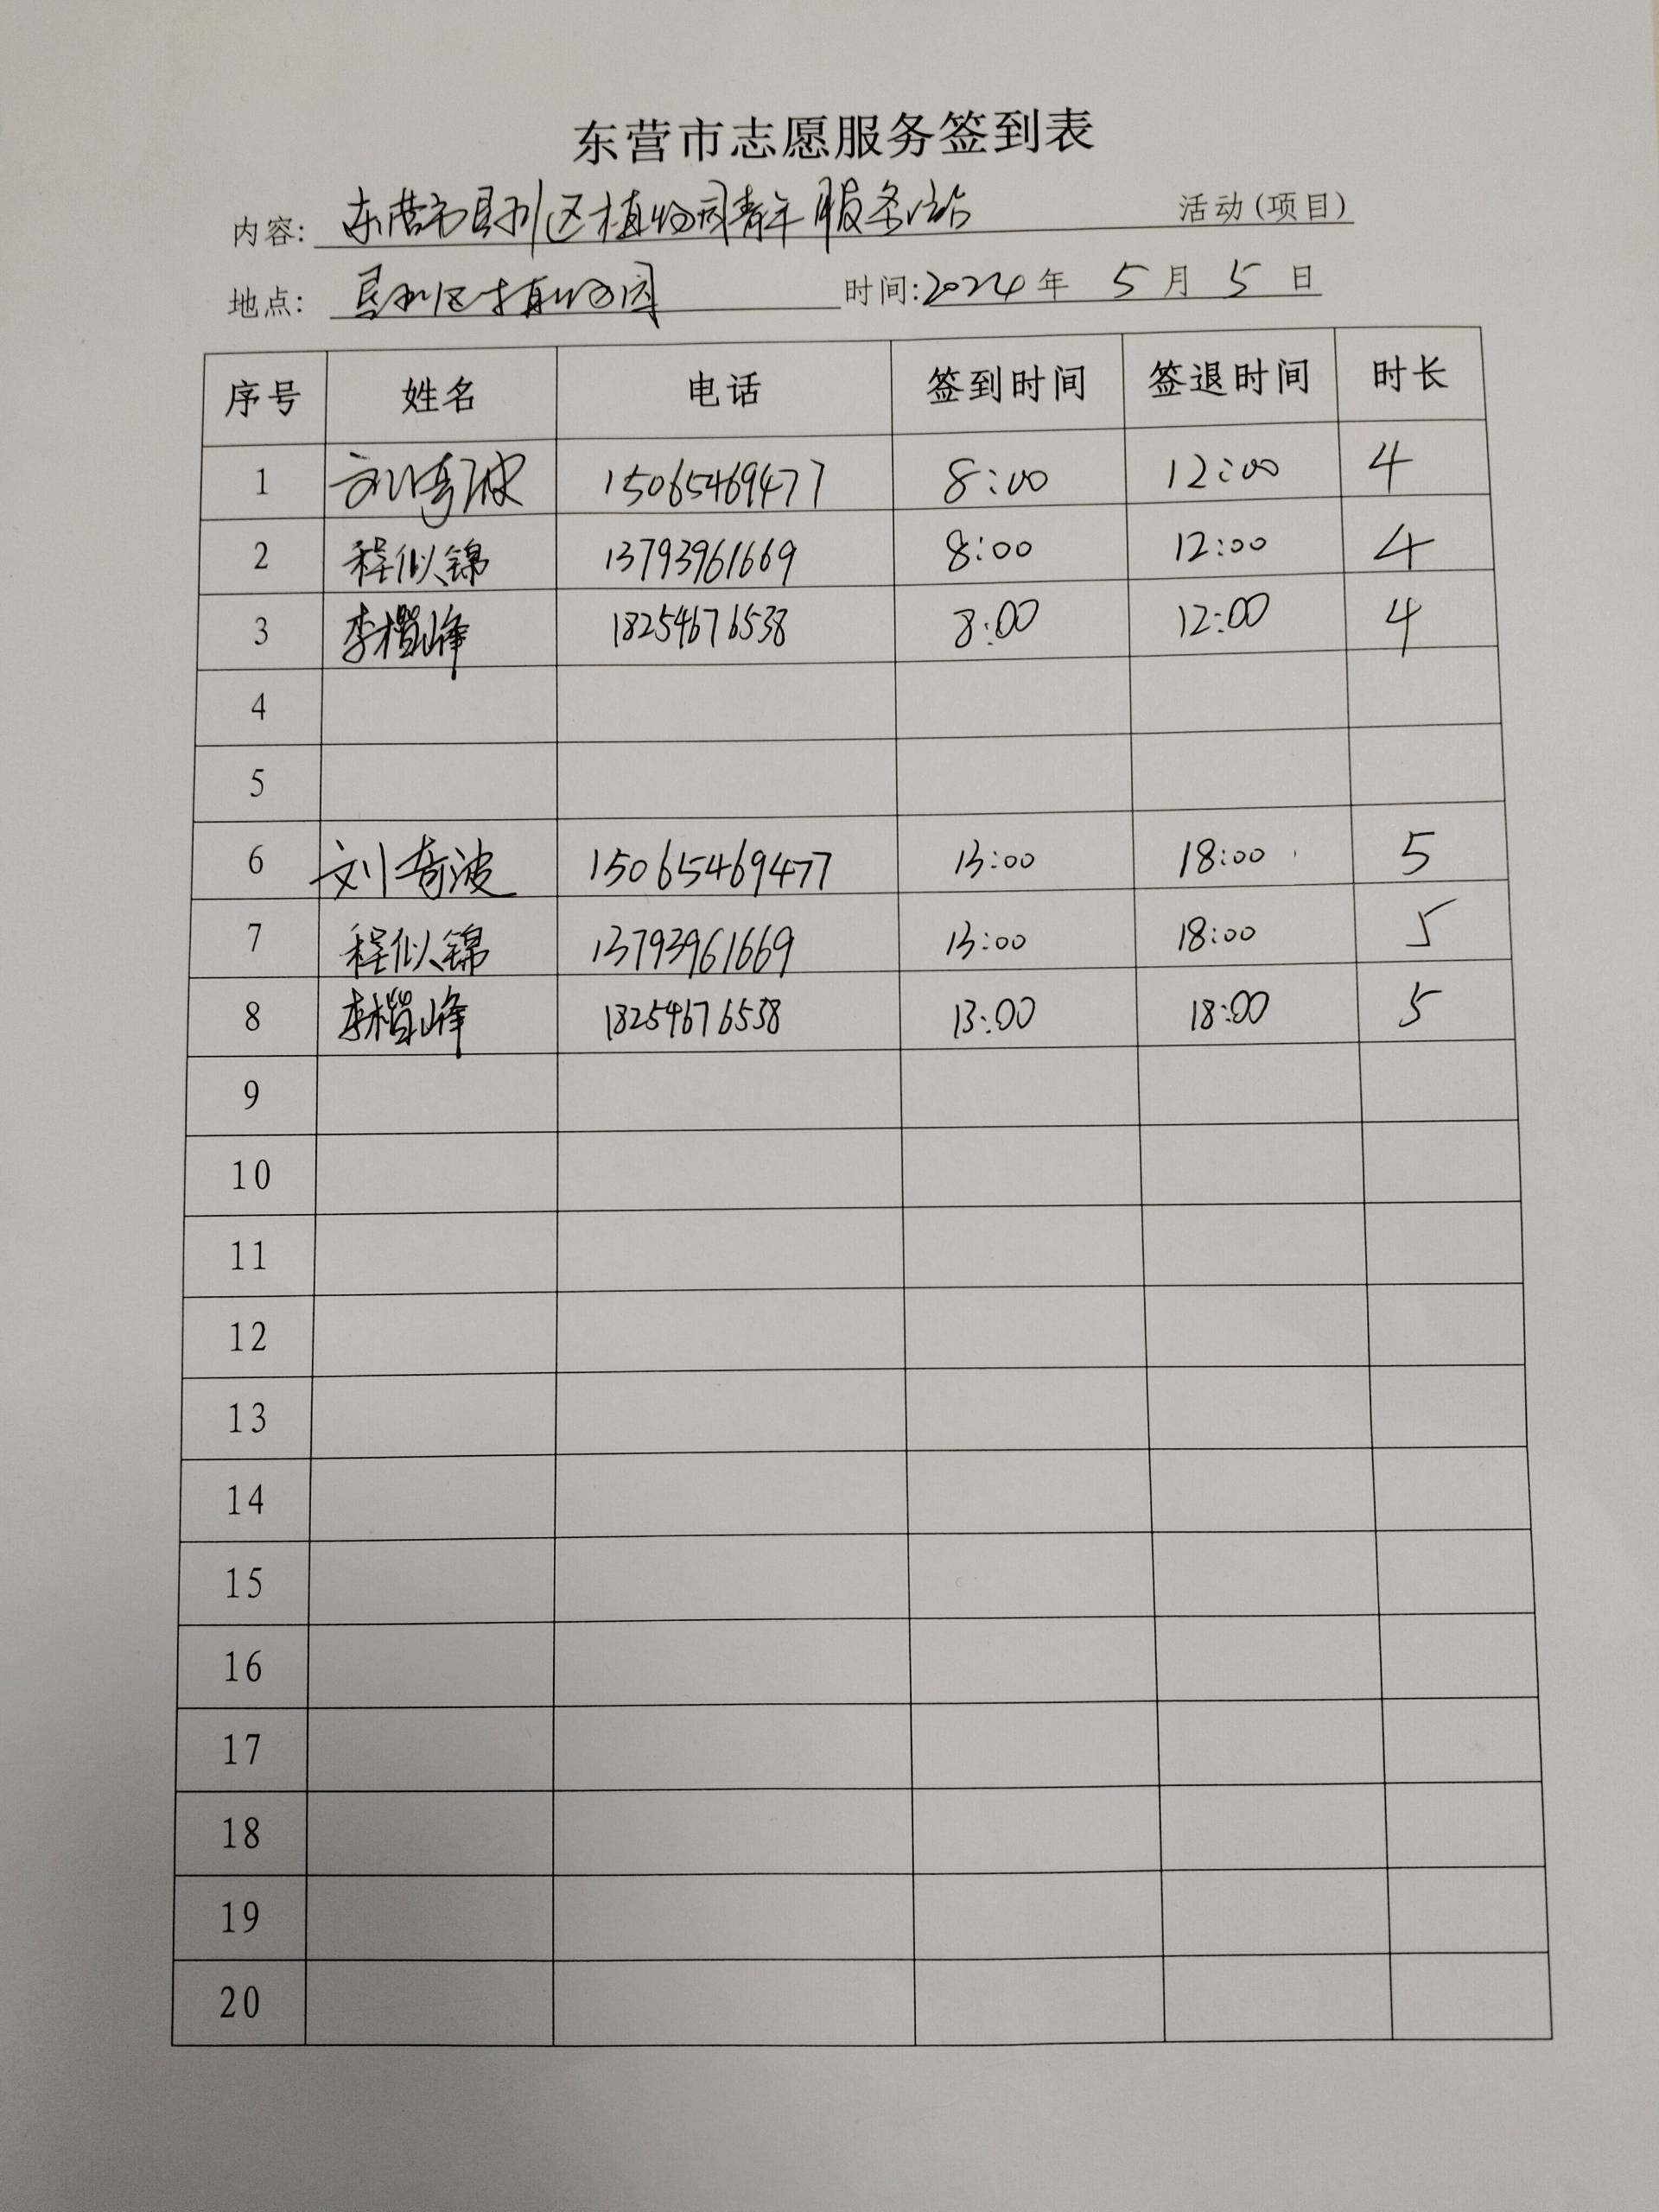 东营市志愿服务签到表
内容: 东营市垦利区植物园青年服务站 活动(项目)
地点: 垦利区植物园 时间:2024年 5月 5日
序号 姓名 电话 签到时间 签退时间 时长
1 刘奇波 15065469477 8:00 12:00 4
2 程似锦 13793961669 8:00 12:00 4
3 李峰 18254676538 8:00 12:00 4
4
5
6 刘奇波 15065469477 13:00 18:00 5
7 程似锦 13793961669 13:00 18:00 5
8 李峰 18254676538 13:00 18:00 5
9
10
11
12
13
14
15
16
17
18
19
20